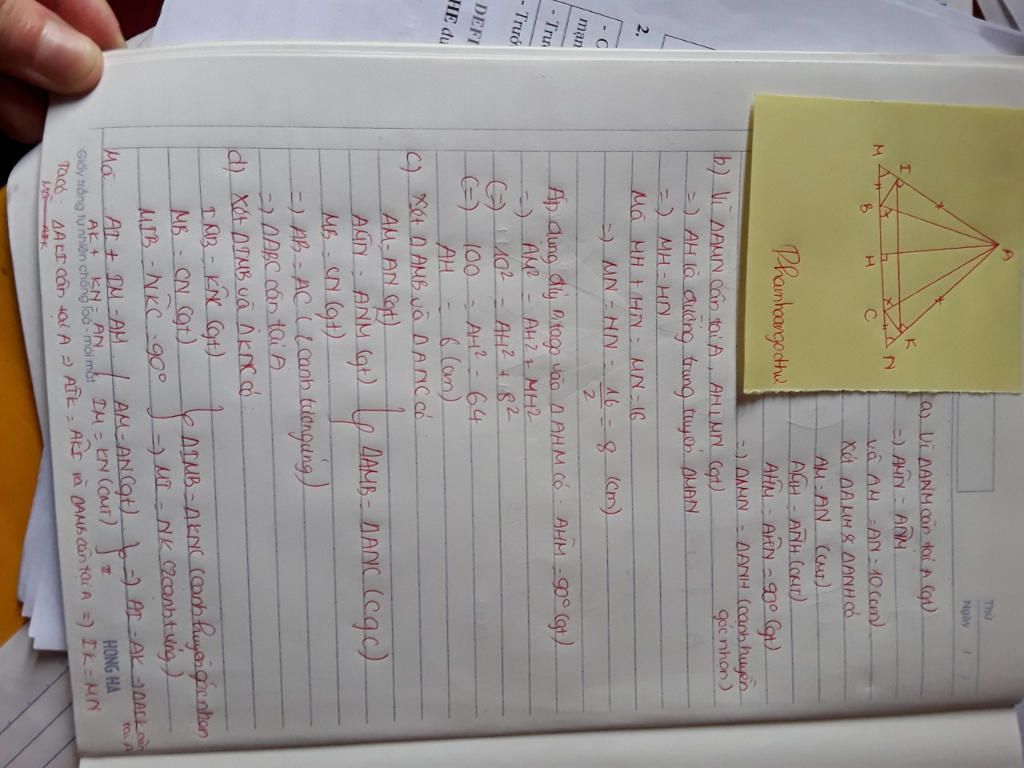 Thứ
Ngày
A
I
K
M
B
H
C
N
Phamhoangothw
a) Vì ΔANM cân tại A (gt)
=) AM̂N = AN̂M
và AM = AN = 10 (cm)
Xét ΔAMH & ΔANH có
AM = AN (cmt)
AM̂H = AN̂H (cmt)
AĤM = AĤN = 90° (gt)
=) ΔAMH = ΔANH (cạnh huyền
góc nhọn)
b) Vì ΔAMN cân tại A, AH⊥MN (gt)
=) AH là đường trung tuyến ΔMAN
=) MH = HN
Mà MH + HN = MN = 16
=) MH = HN = 16/2 = 8 (cm)
Áp dụng đlý Pitago vào ΔAHM có: AĤM = 90° (gt)
=) AM² = AH² + MH²
(=) 10² = AH² + 8²
(=) 100 = AH² = 64
AH = 6 (cm)
c) Xét ΔAMB và ΔANC có
AM = AN (gt)
AM̂N = AN̂M (gt)
MB = CN (gt)
ΔAMB = ΔANC (c.g.c)
=) AB = AC (2 cạnh tương ứng)
=) ΔABC cân tại A
d) Xét ΔIMB và ΔKNC có:
MB = CN (gt)
MÎB = NK̂C = 90°
ΔIMB = ΔKNC (cạnh huyền góc nhọn
=) MI = NK (2 cạnh t.ứng)
Mà AI + IM = AM
AK + KN = AN
AM = AN (gt)
IM = KN (cmt)
=) AI = AK =) ΔAIK cân
tại A
Ta có: ΔAKI cân tại A =) AÎK = AK̂I và ΔAMB cân tại A =) IK = MN
Giấy trắng tự nhiên chống loá - mỏi mắt
HONG HA
2.
mạn
DEFI
HE du